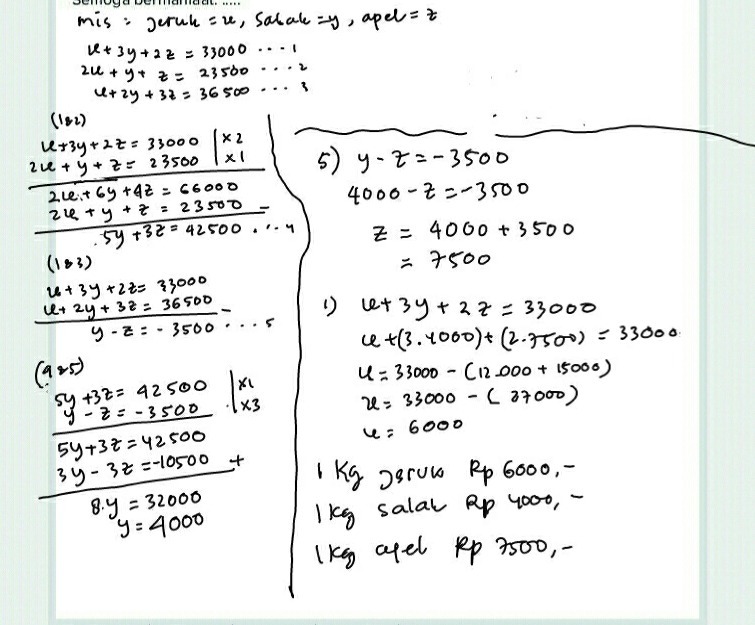 Semoga bermanfaat. .....
mis : Jeruk = x, Salak = y, apel = z
x + 3y + 2z = 33000 .... 1
2x + y + z = 23500 .... 2
x + 2y + 3z = 36500 .... 3
(1&2)
x + 3y + 2z = 33000 | x 2
2x + y + z = 23500 | x 1
2x + 6y + 4z = 66000
2x + y + z = 23500 -
5y + 3z = 42500 ... 4
(1&3)
x + 3y + 2z = 33000
x + 2y + 3z = 36500 -
y - z = - 3500 .... 5
(4&5)
5y + 3z = 42500 | x1
y - z = - 3500 | x3
5y + 3z = 42500
3y - 3z = -10500 +
8.y = 32000
y = 4000
5) y - z = - 3500
4000 - z = - 3500
z = 4000 + 3500
= 7500
1) x + 3y + 2z = 33000
x + (3.4000) + (2.7500) = 33000
x = 33000 - (12.000 + 15000)
x = 33000 - (27000)
x = 6000
1 Kg Jeruk Rp 6000,-
1 kg salak Rp 4000,-
1 kg apel Rp 7500,-